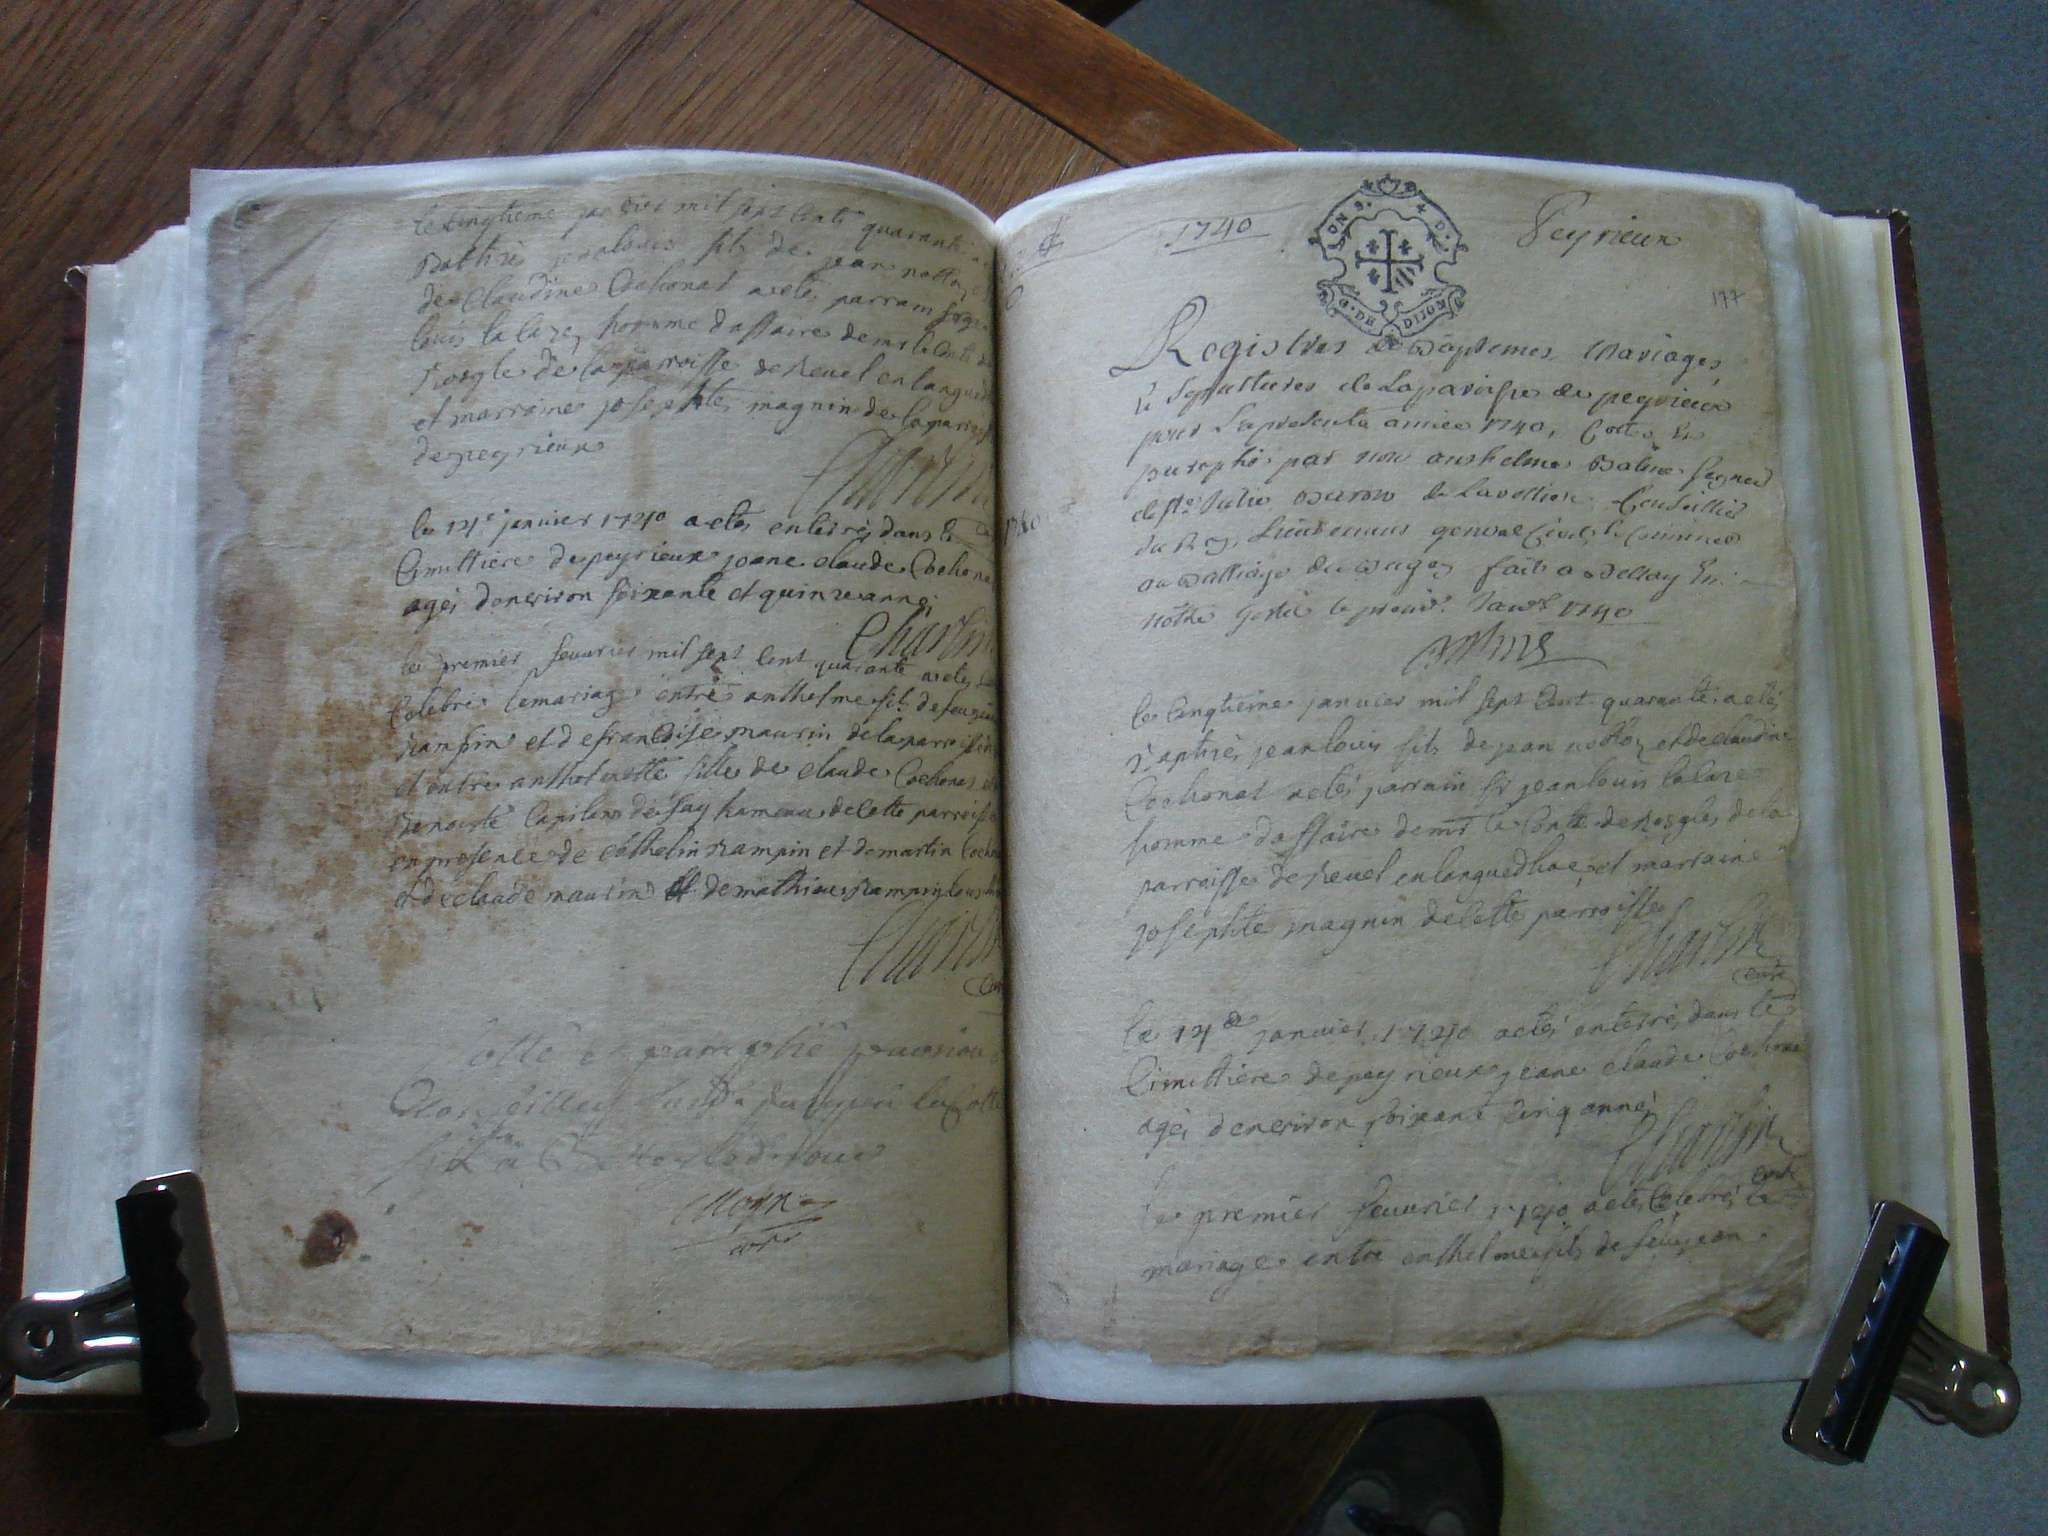 le cinqtieme janvier mil sept cents quarante
Battisé jean louis fils de jean
de Claudine Cochonat a eté parrain
louis la laze homme d'affaire de mr le Conte de
de la parroisse de Revel en langued
et marraine josephte magnin de la parroisse
de peyrieux
Charvin
le 14e janvier 1740 a eté enterré dans le
Cimittiere de peyrieux jeane claude Cochona
agée d'environ soixante et quinze année
Charvin
le premier feuvrier mil sept cent quarante a eté
Celebré le mariage entre anthelme fils de feu jean
rampin et de francoise maurin de la parroisse
et entre anthelmette fille de claude Cochonat et
Benoiste Capilon de fay hameau de cette parroisse
en presence de Cathelin rampin et de martin Coch
et de claude maurin et de mathieu rampin
Charvin
Cotté et paraphé par nous
Conseiller
1740
ON 9. 4 D.
G. DE DIJON
Peyrieux
177
Registres de Baptemes, Mariages,
& Sepultures de La paroisse de peyrieux
pour La presente année 1740, Cotté &
paraphé par nous anthelme Balme Seigneur
de Ste Julie Baron de Lavellion Conseillier
du Roy, Lieutenant general Civil & Criminel
au Balliage du Bugey fait a Belley En
notre hotel le premr. Janvr 1740
Balme
le cinqtieme janvier mil sept cent quarante a eté
Baptisé jean louis fils de jean et de claudine
Cochonat a eté parrain sr jean louis la laze
homme d'affaire de mr le Conte de de la
parroisse de Revel en languedhoc, et marraine
josephte magnin de cette parroisse
Charvin
curé
le 14e janvier 1740 a eté enterré dans le
Cimittiere de peyrieux jeane claude Cochona
agée d'environ soixante cinq année
Charvin
curé
le premier feuvrier 1740 a eté Celebré le
mariage entre enthelme fils de feu jean